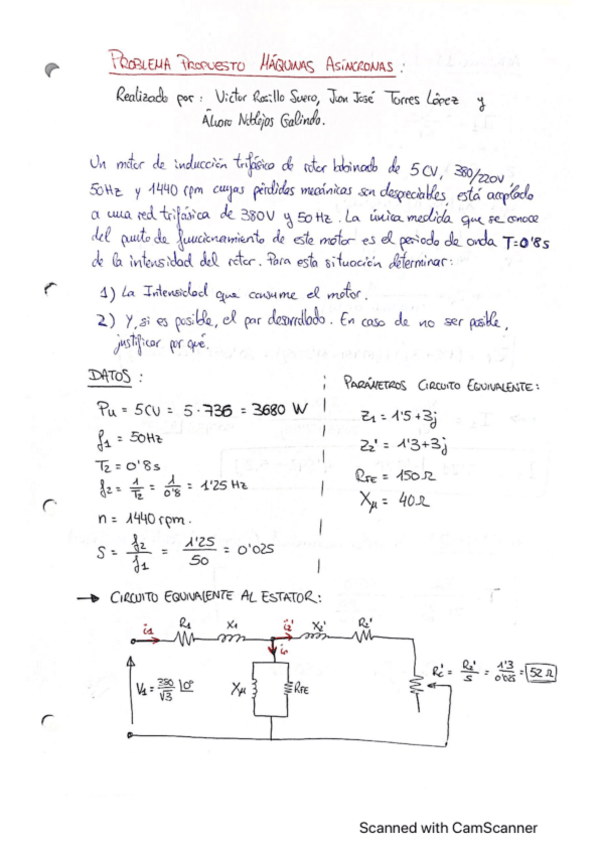 PROBLEMA PROPUESTO MÁQUINAS ASÍNCRONAS:
Realizado por: Victor Rosillo Suero, Juan José Torres López y
Álvaro Noblejas Galindo.
Un motor de inducción trifásico de rotor bobinado de 5 CV, 380/220V
50Hz y 1440 rpm cuyas pérdidas mecánicas son despreciables, está acoplado
a una red trifásica de 380V y 50Hz. La única medida que se conoce
del punto de funcionamiento de este motor es el periodo de onda T=0'8s
de la intensidad del rotor. Para esta situación determinar:
1) La Intensidad que consume el motor.
2) Y, si es posible, el par desarrollado. En caso de no ser posible,
justificar por qué.
DATOS:
Pu = 5CV = 5·736 = 3680 W
f1 = 50Hz
T2 = 0'8s
f2 = 1/T2 = 1/0'8 = 1'25 Hz
n = 1440 rpm.
S = f2/f1 = 1'25/50 = 0'025
PARÁMETROS CIRCUITO EQUIVALENTE:
Z1 = 1'5+3j
Z2' = 1'3+3j
RFE = 150Ω
Xμ = 40Ω
→ CIRCUITO EQUIVALENTE AL ESTATOR:
i1 R1 X1 i2' X2' R2'
io
V1 = 380/√3 |0° Xμ RFE
Rc' = R2'/S = 1'3/0'025 = 52 Ω
Scanned with CamScanner